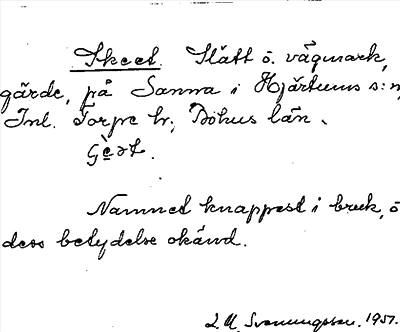 Skeet. Slätt o. vägmark,
gärde, på Sanna i Hjärtums s:n,
Inl. Torpe hr, Bohus län.
Namnet knappest i bruk, o
dess betydelse okänd.
L M. Svenungsson. 1951.